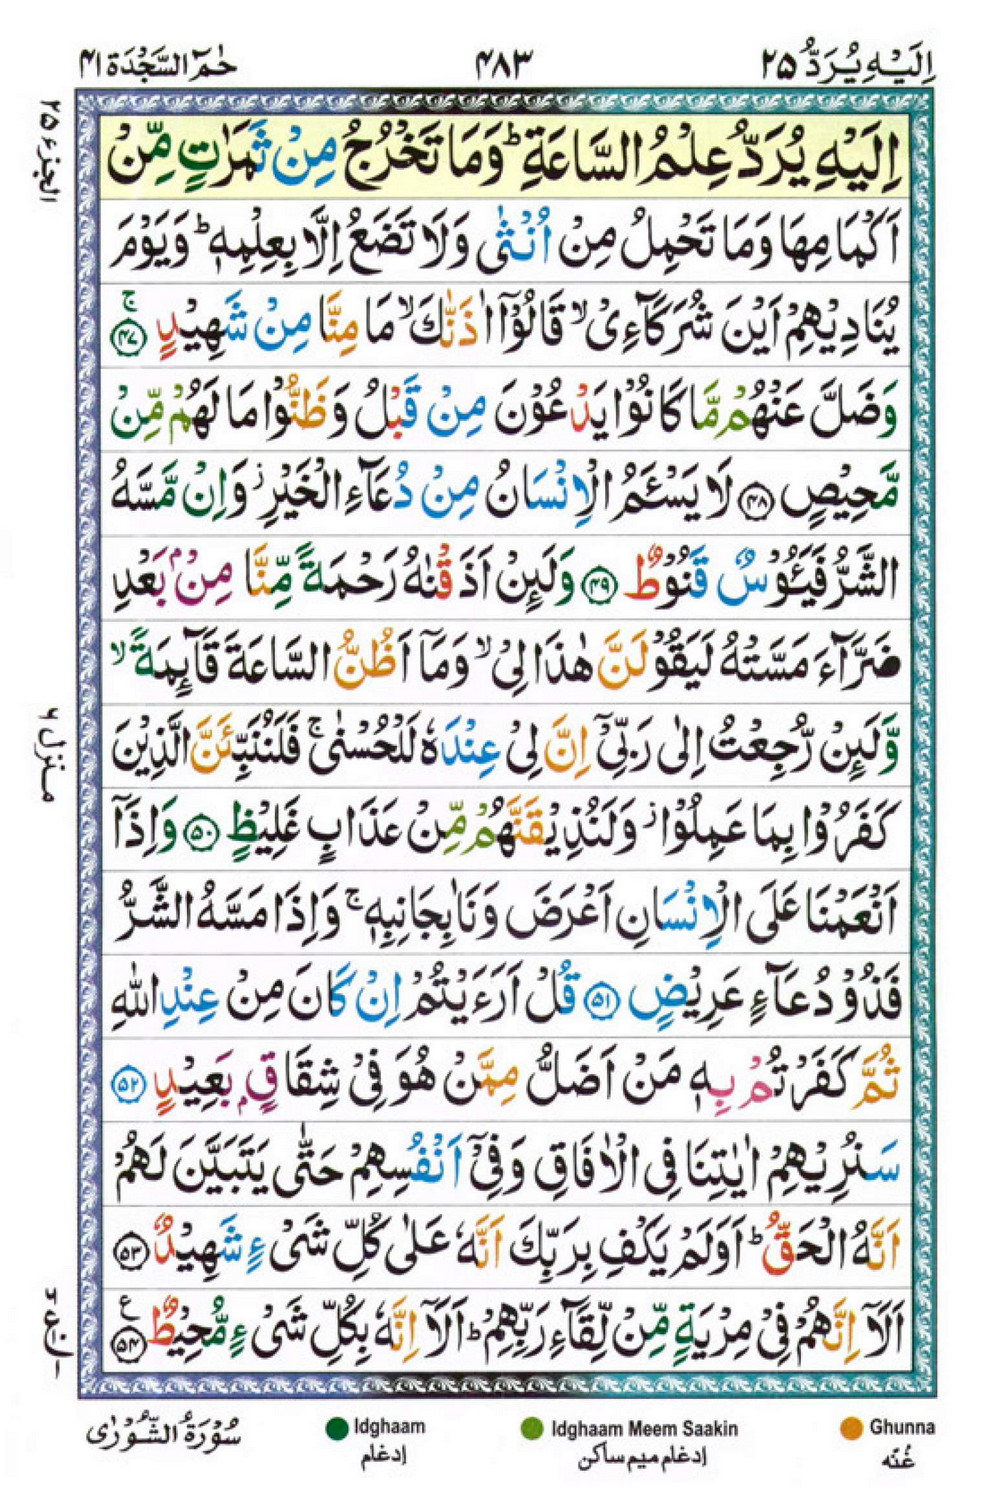 اِلَیْہِ یُرَدُّ ۲۵
۴۸۳
حٰمٓ السَّجْدَۃ ۴۱
الجزء ۲۵
اِلَیْهِ یُرَدُّ عِلْمُ السَّاعَةِ ؕ وَمَا تَخْرُجُ مِنْ ثَمَرٰتٍ مِّنْ
اَكْمَامِهَا وَمَا تَحْمِلُ مِنْ اُنْثٰی وَلَا تَضَعُ اِلَّا بِعِلْمِهٖ ؕ وَیَوْمَ
یُنَادِیْهِمْ اَیْنَ شُرَكَآءِیْ ۙ قَالُوْۤا اٰذَنّٰكَ ۙ مَا مِنَّا مِنْ شَهِیْدٍ ۚ ﴿۴۷﴾
وَضَلَّ عَنْهُمْ مَّا كَانُوْا یَدْعُوْنَ مِنْ قَبْلُ وَظَنُّوْا مَا لَهُمْ مِّنْ
مَّحِیْصٍ ﴿۴۸﴾ لَا یَسْـَٔمُ الْاِنْسَانُ مِنْ دُعَآءِ الْخَیْرِ ؗ وَاِنْ مَّسَّهُ
الشَّرُّ فَیَـُٔوْسٌ قَنُوْطٌ ﴿۴۹﴾ وَلَىِٕنْ اَذَقْنٰهُ رَحْمَةً مِّنَّا مِنْۢ بَعْدِ
ضَرَّآءَ مَسَّتْهُ لَیَقُوْلَنَّ هٰذَا لِیْ ۙ وَمَاۤ اَظُنُّ السَّاعَةَ قَآىِٕمَةً ۙ
وَّلَىِٕنْ رُّجِعْتُ اِلٰی رَبِّیْۤ اِنَّ لِیْ عِنْدَهٗ لَلْحُسْنٰی ۚ فَلَنُنَبِّئَنَّ الَّذِیْنَ
كَفَرُوْا بِمَا عَمِلُوْا ؗ وَلَنُذِیْقَنَّهُمْ مِّنْ عَذَابٍ غَلِیْظٍ ﴿۵۰﴾ وَاِذَاۤ
اَنْعَمْنَا عَلَی الْاِنْسَانِ اَعْرَضَ وَنَاٰ بِجَانِبِهٖ ۚ وَاِذَا مَسَّهُ الشَّرُّ
فَذُوْ دُعَآءٍ عَرِیْضٍ ﴿۵۱﴾ قُلْ اَرَءَیْتُمْ اِنْ كَانَ مِنْ عِنْدِ اللّٰهِ
ثُمَّ كَفَرْتُمْ بِهٖ مَنْ اَضَلُّ مِمَّنْ هُوَ فِیْ شِقَاقٍۭ بَعِیْدٍ ﴿۵۲﴾
سَنُرِیْهِمْ اٰیٰتِنَا فِی الْاٰفَاقِ وَفِیْۤ اَنْفُسِهِمْ حَتّٰی یَتَبَیَّنَ لَهُمْ
اَنَّهُ الْحَقُّ ؕ اَوَلَمْ یَكْفِ بِرَبِّكَ اَنَّهٗ عَلٰی كُلِّ شَیْءٍ شَهِیْدٌ ﴿۵۳﴾
اَلَاۤ اِنَّهُمْ فِیْ مِرْیَةٍ مِّنْ لِّقَآءِ رَبِّهِمْ ؕ اَلَاۤ اِنَّهٗ بِكُلِّ شَیْءٍ مُّحِیْطٌ ﴿۵۴﴾ ع
منزل ۶
سُوْرَۃُ الشُّوْرٰی
Idghaam
ادغام
Idghaam Meem Saakin
ادغام میم ساکن
Ghunna
غُنّه